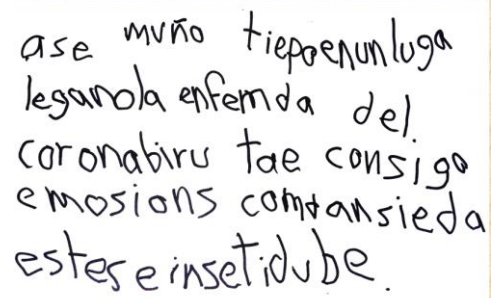 ase muño tiepoenunluga
leganola enfemda del
coronabiru tae consigo
emosions comtansieda
estes e insetidube.